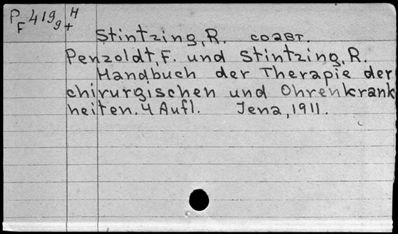 P 419 H
F 9+
Stintzing, R. соавт.
Penzoldt, F. und Stintzing, R.
Handbuch der Therapie der
chirurgischen und Ohrenkrank
heiten. 4 Aufl. Jena, 1911.